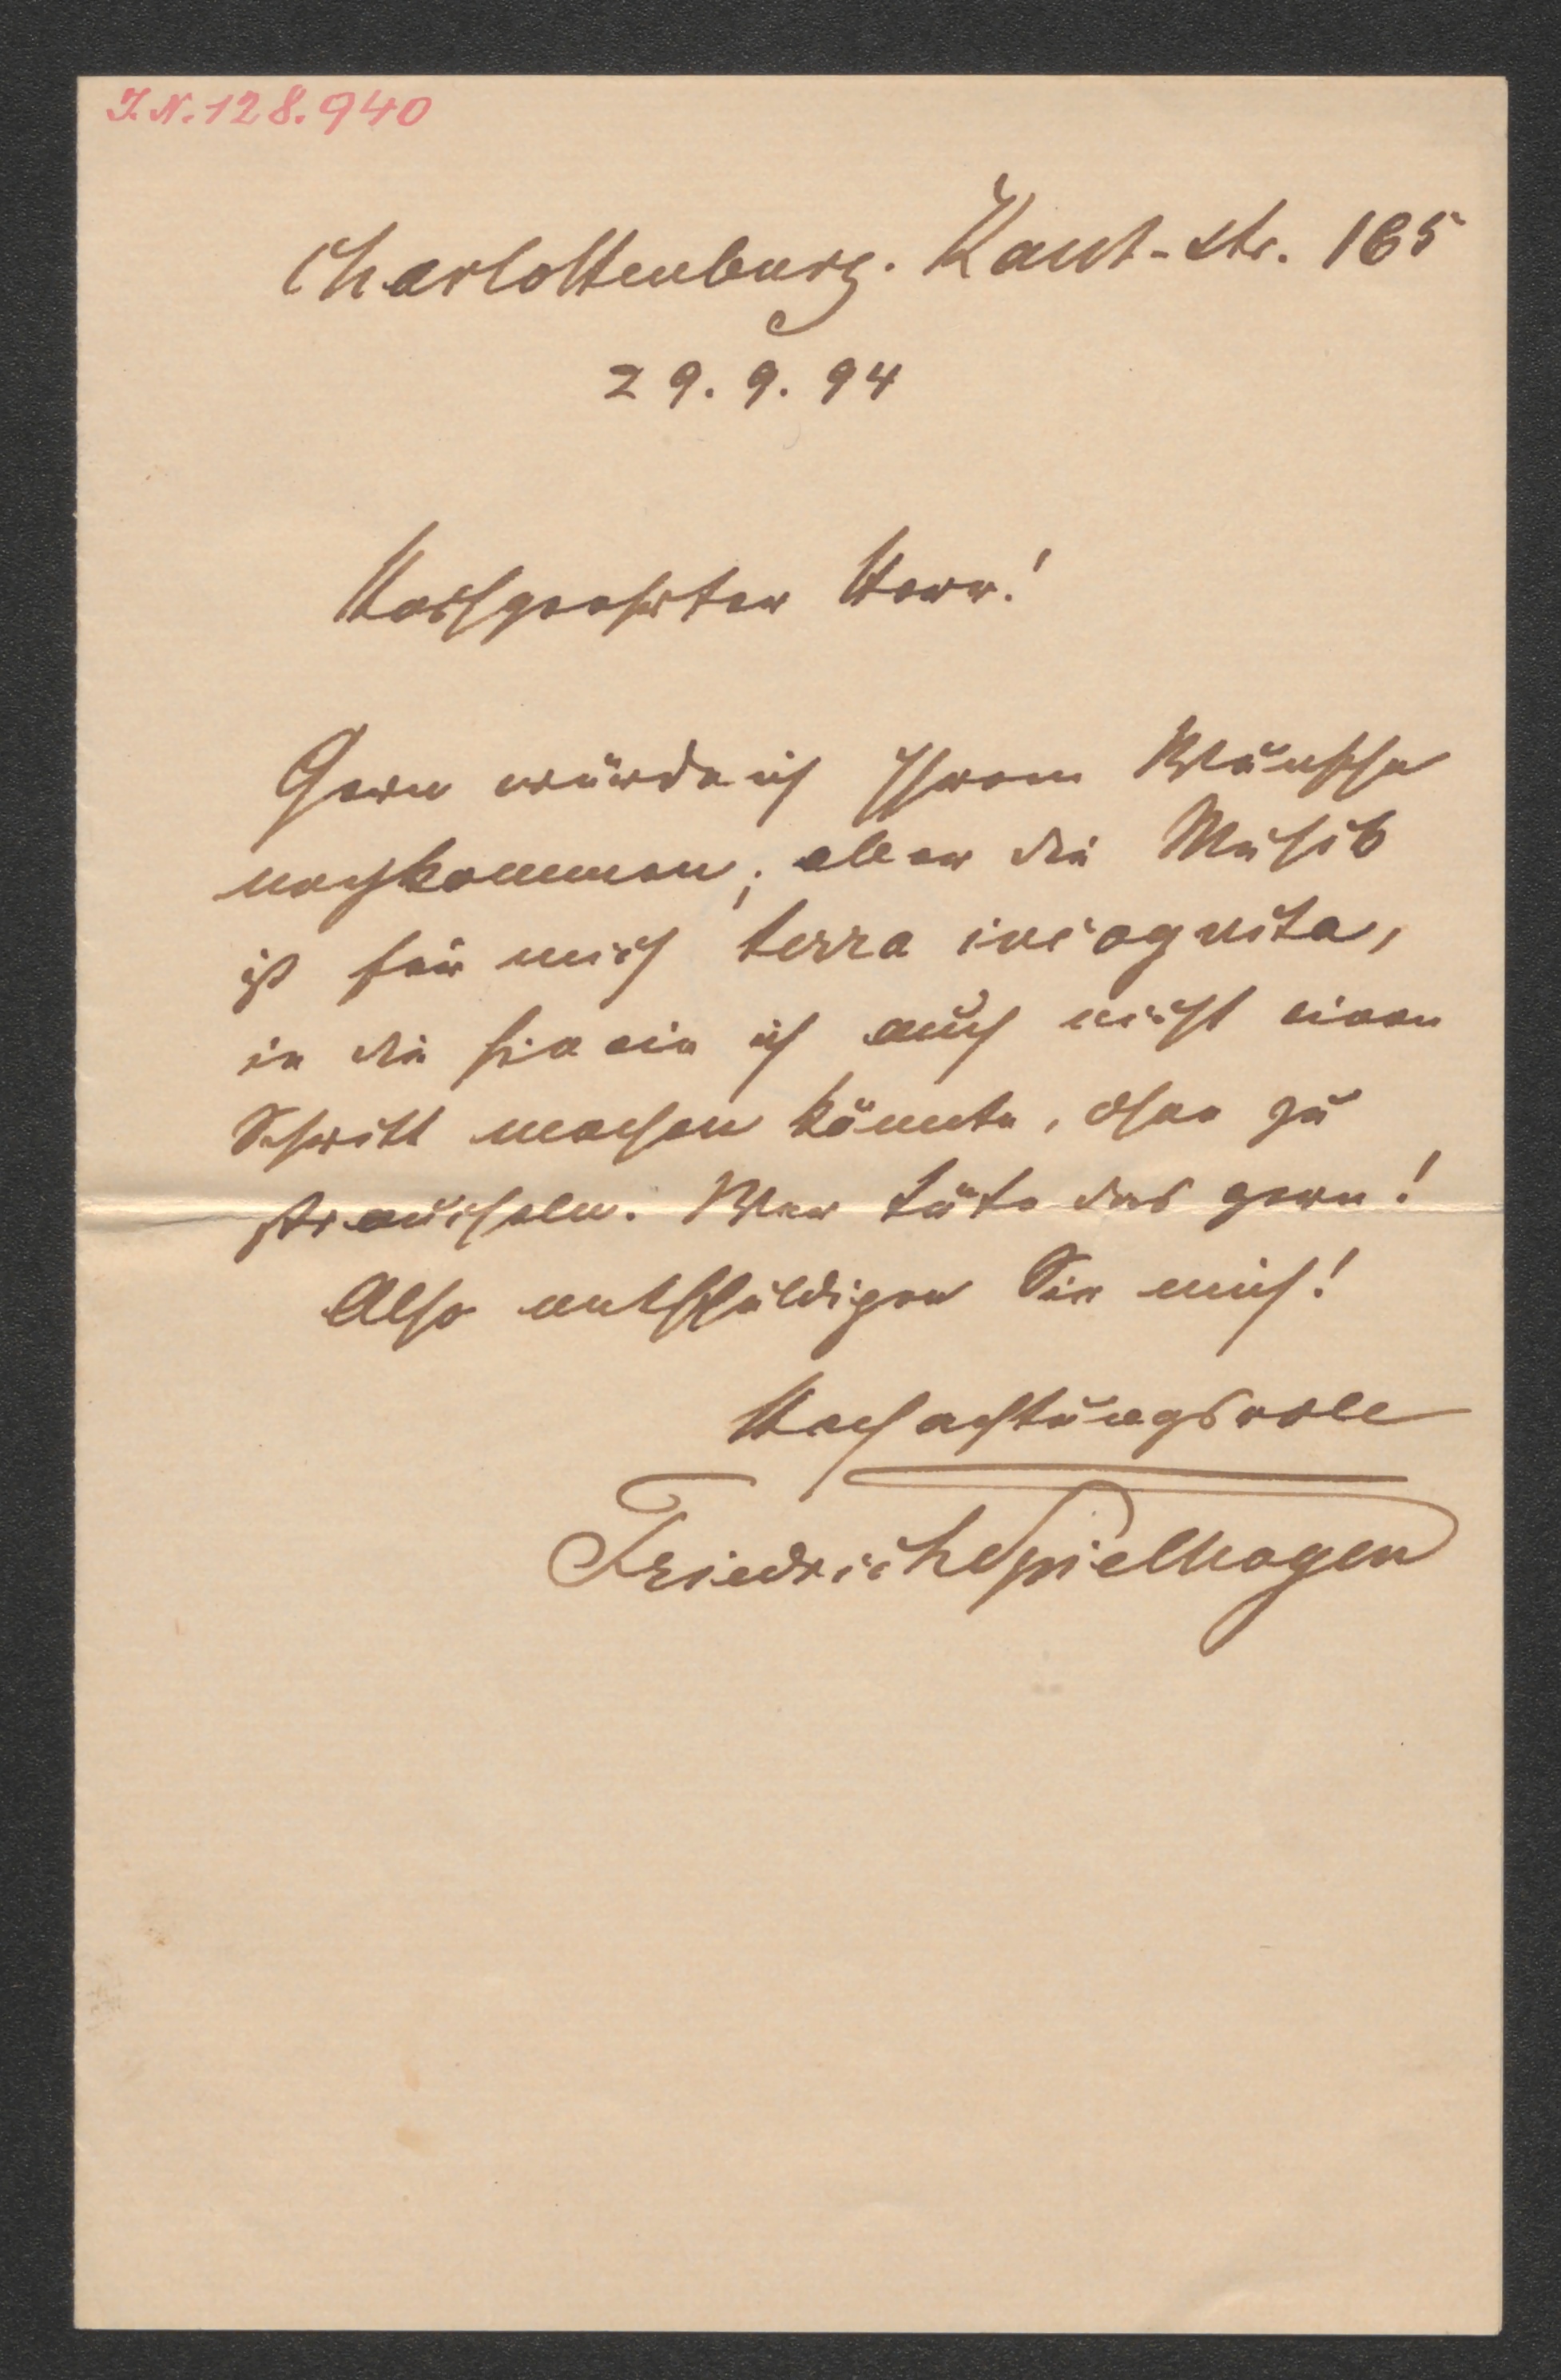 I. N. 128.940
Charlottenburg. Kant-str. 165
29. 9. 94
Hochgeehrter Herr!
Gern würde ich Ihrem Wunsche
nachkommen; aber die Musik
ist für mich terra incognita,
in die hinein ich auch nicht einen
Schritt machen könnte, ohne zu
straucheln. Wer täte das gern!
Also entschuldigen Sie mich!
Hochachtungsvoll
Friedrich Spielhagen